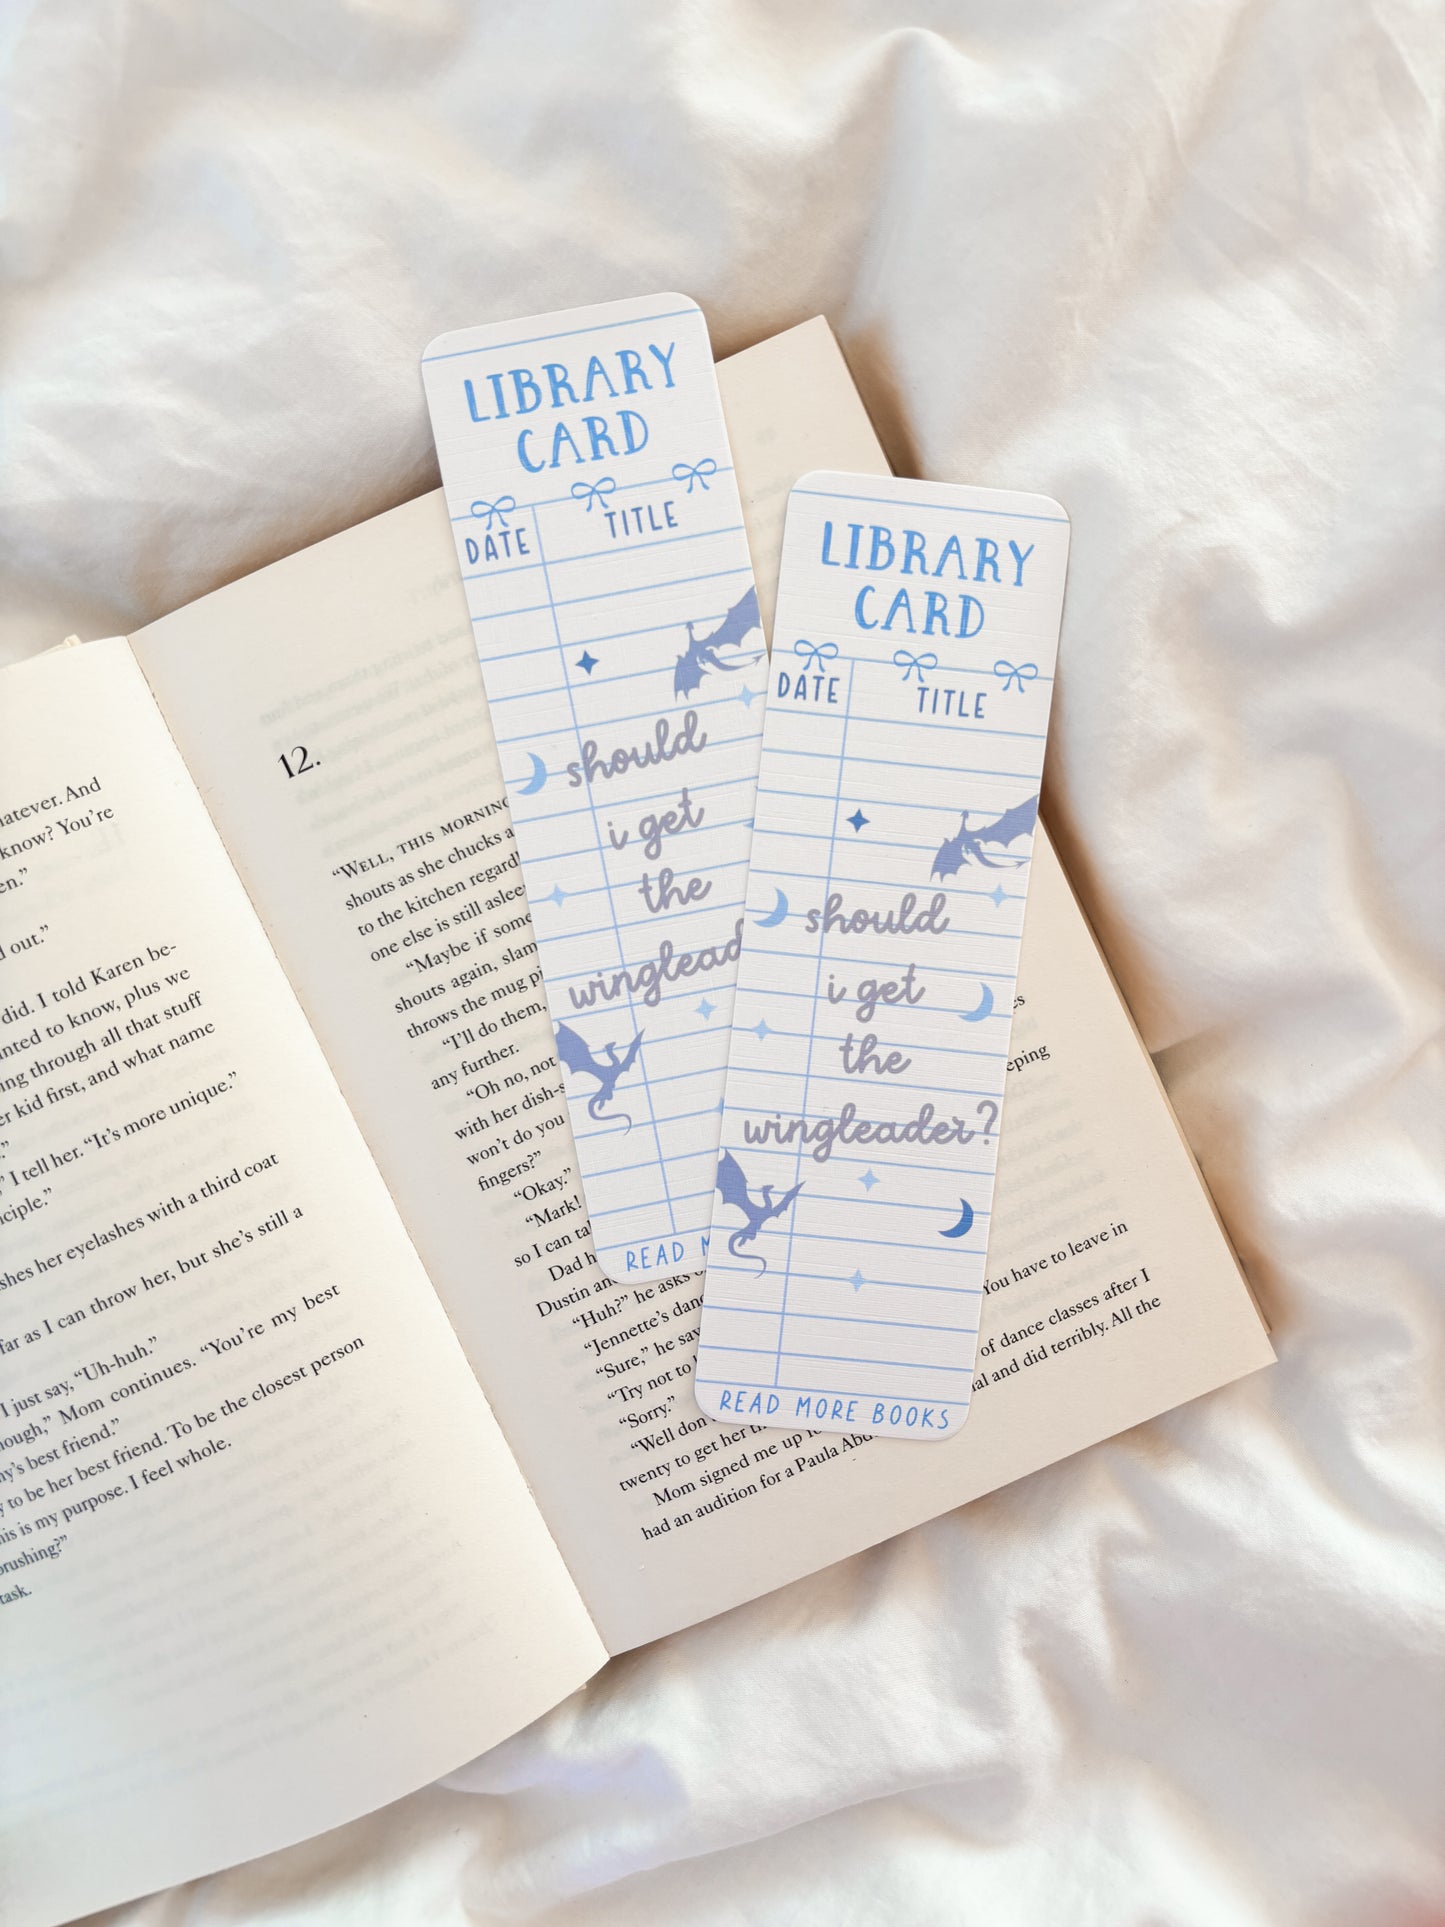 LIBRARY
CARD
DATE TITLE
should
i get
the
winglead
READ
LIBRARY
CARD
DATE TITLE
should
i get
the
wingleader?
READ MORE BOOKS
hatever. And
know? You're
en."
d out."
did. I told Karen be-
nted to know, plus we
ing through all that stuff
er kid first, and what name
."
" I tell her. "It's more unique."
ciple."
shes her eyelashes with a third coat
far as I can throw her, but she's still a
I just say, "Uh-huh."
ough," Mom continues. "You're my best
y's best friend."
y to be her best friend. To be the closest person
his is my purpose. I feel whole.
brushing?"
task.
12.
"WELL, THIS MORNING
shouts as she chucks a
to the kitchen regard
one else is still aslee
"Maybe if some
shouts again, slam
throws the mug pi
"I'll do them,
any further.
"Oh no, not
with her dish-s
won't do you
fingers?"
"Okay."
"Mark!
so I can ta
Dad h
Dustin an
"Huh?" he asks
"Jennette's danc
"Sure," he say
"Try not to
"Sorry."
"Well don
twenty to get her
Mom signed me up
had an audition for a Paula Abd
es
eping
You have to leave in
of dance classes after I
al and did terribly. All the